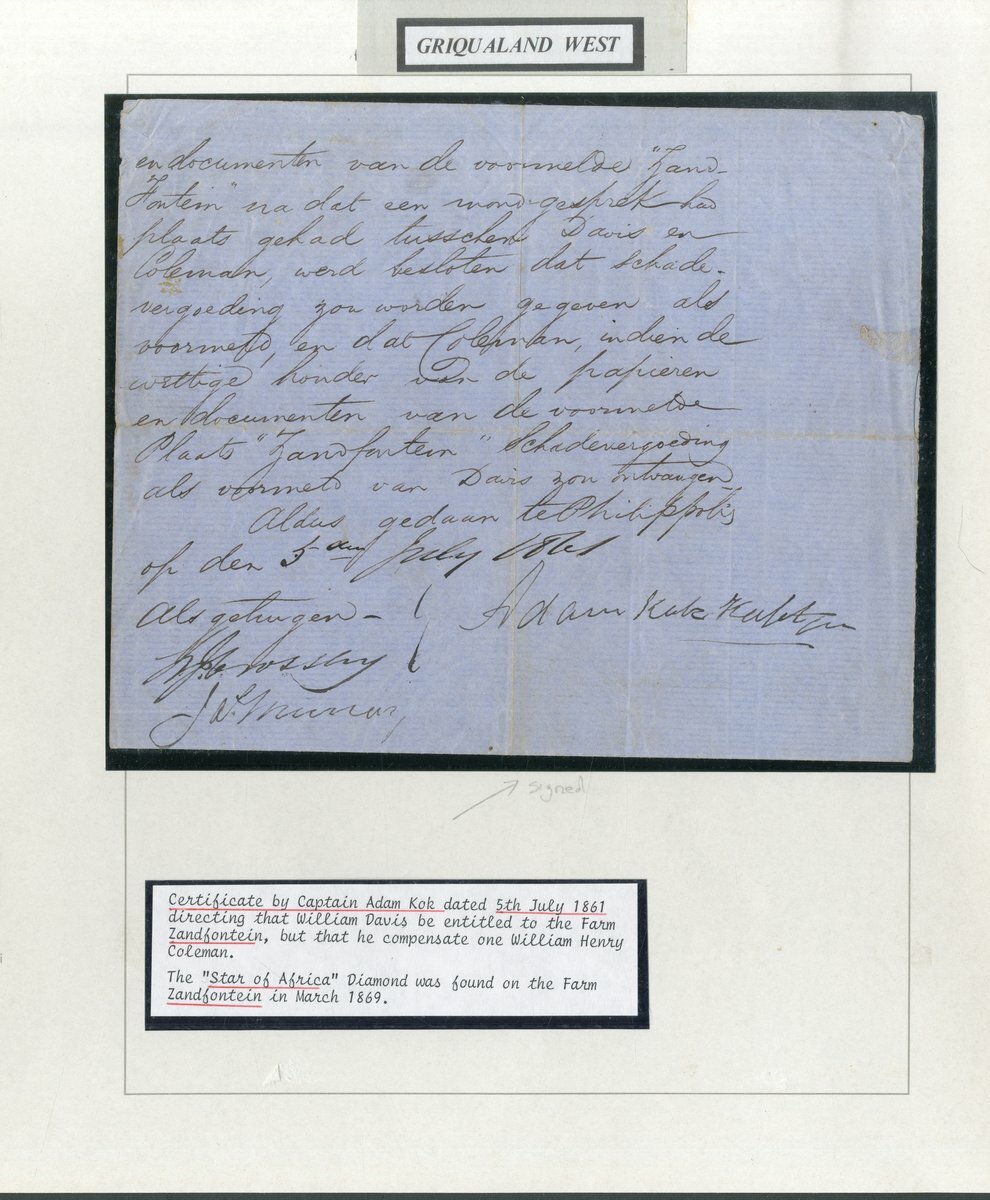 GRIQUALAND WEST
en documenten van de voormelde "Zand-
Fontein" na dat een mond-gesprek had
plaats gehad tusschen Davis en
Coleman, werd besloten dat schade-
vergoeding zou worden gegeven als
voormeld, en dat Coleman, indien de
wettige houder van de papieren
en documenten van de voormelde
Plaats "Zandfontein" Schadevergoeding
als voormeld van Davis zou ontvangen
Aldus gedaan te Philippolis
op den 5 den July 1861
Als getuigen -
Adam Kok Kaptyn
J W. Murray
signed
Certificate by Captain Adam Kok dated 5th July 1861
directing that William Davis be entitled to the Farm
Zandfontein, but that he compensate one William Henry
Coleman.
The "Star of Africa" Diamond was found on the Farm
Zandfontein in March 1869.